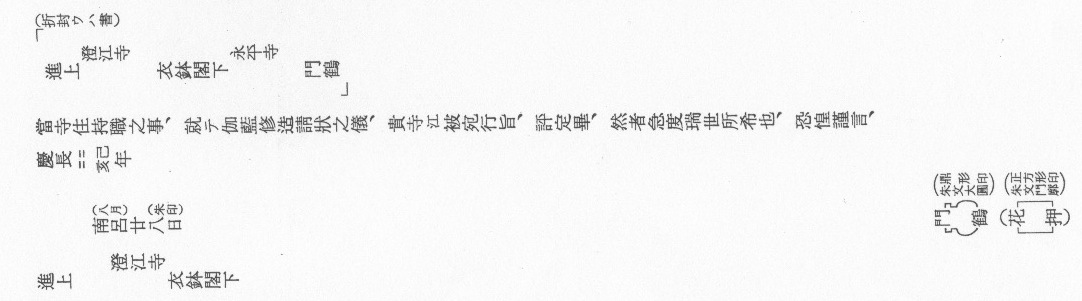 (折封ウハ書)
「澄江寺　永平寺
進上　衣鉢閣下　門鶴」
當寺住持職之事、就テ伽藍修造請狀之儀、貴寺江被宛行旨、評定畢、然者急度瑞世所希也、恐惶謹言、
慶長==己亥年
(八月)　(朱印)
南呂廿八日
門鶴
(花押)
(正方形印
朱文門廓)
澄江寺
進上　衣鉢閣下